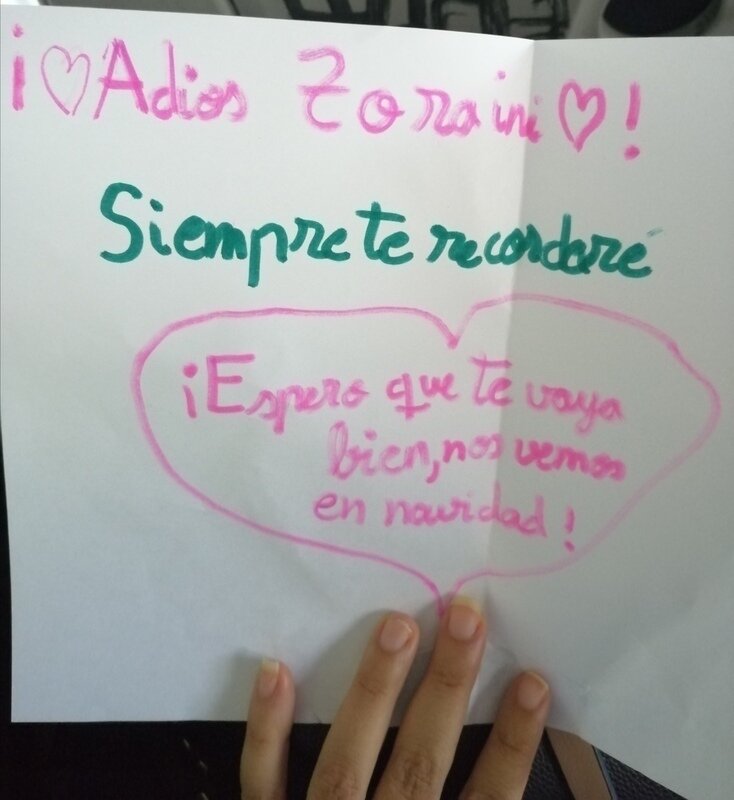 ¡♡Adios Zoraini♡!
Siempre te recordaré
¡Espero que te vaya
bien, nos vemos
en navidad!